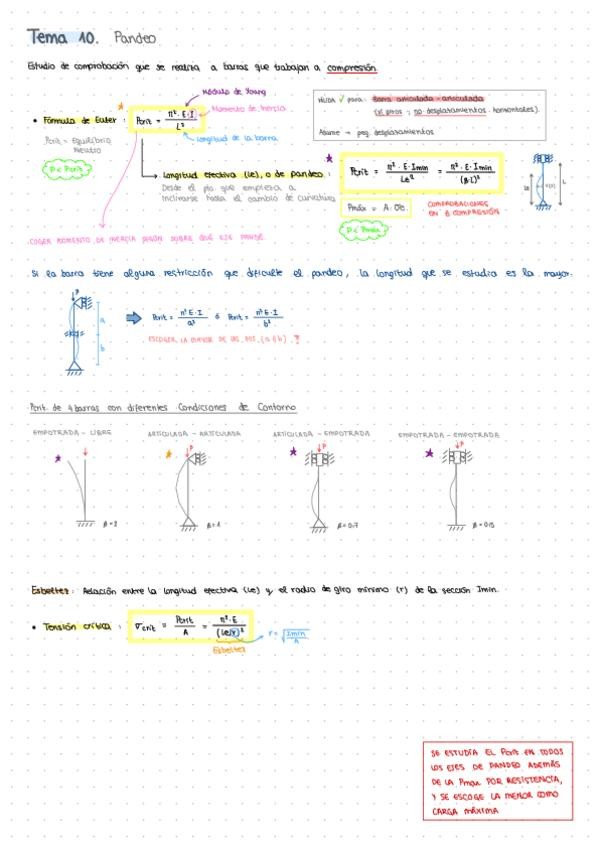 Tema 10. Pandeo
Estudio de comprobación que se realiza a barras que trabajan a compresión
Módulo de Young
• Fórmula de Euler: Pcrit = π²·E·I / L²
Momento de inercia
Longitud de la barra
Pcrit = Equilibrio
Neutro
P < Pcrit
VÁLIDA ✓ para: Barra articulada - articulada
(sí giros; no desplazamientos horizontales).
Asume → peq. desplazamientos
Longitud efectiva (Le), o de pandeo:
Desde el pto que empieza a
inclinarse hasta el cambio de curvatura
Pcrit = π²·E·Imin / Le² = π²·E·Imin / (β·L)²
Pmáx = A·σc
COMPROBACIONES
EN B COMPRESIÓN
P < Pmáx
Le
L
COGER MOMENTO DE INERCIA SEGÚN SOBRE QUÉ EJE PANDE.
Si la barra tiene alguna restricción que dificulte el pandeo, la longitud que se estudia es la mayor.
P
a
b
Pcrit = π²E·I / a² ó Pcrit = π²E·I / b²
Pcrit de 4 barras con diferentes Condiciones de Contorno
EMPOTRADA - LIBRE
ARTICULADA - ARTICULADA
ARTICULADA - EMPOTRADA
EMPOTRADA - EMPOTRADA
P
P
P
P
β=2
β=1
β=0.7
β=0.5
Esbeltez: Relación entre la longitud efectiva (Le) y el radio de giro mínimo (r) de la sección Imin.
• Tensión crítica: σcrit = Pcrit / A = π²·E / (Le/r)²
r = √(Imin / A)
Esbeltez
SE ESTUDIA EL Pcrit EN TODOS
LOS EJES DE PANDEO ADEMÁS
DE LA Pmax POR RESISTENCIA,
Y SE ESCOGE LA MENOR COMO
CARGA MÁXIMA